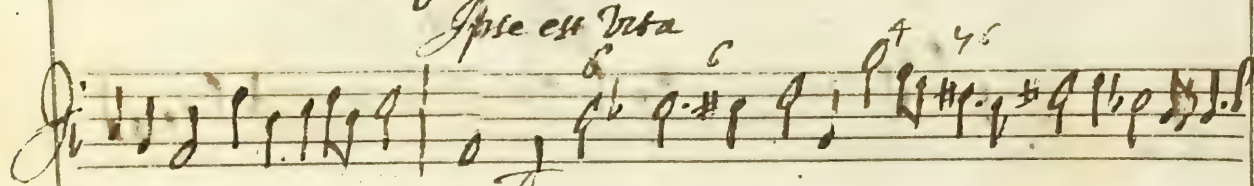 Ipse est Vita
6 6 4